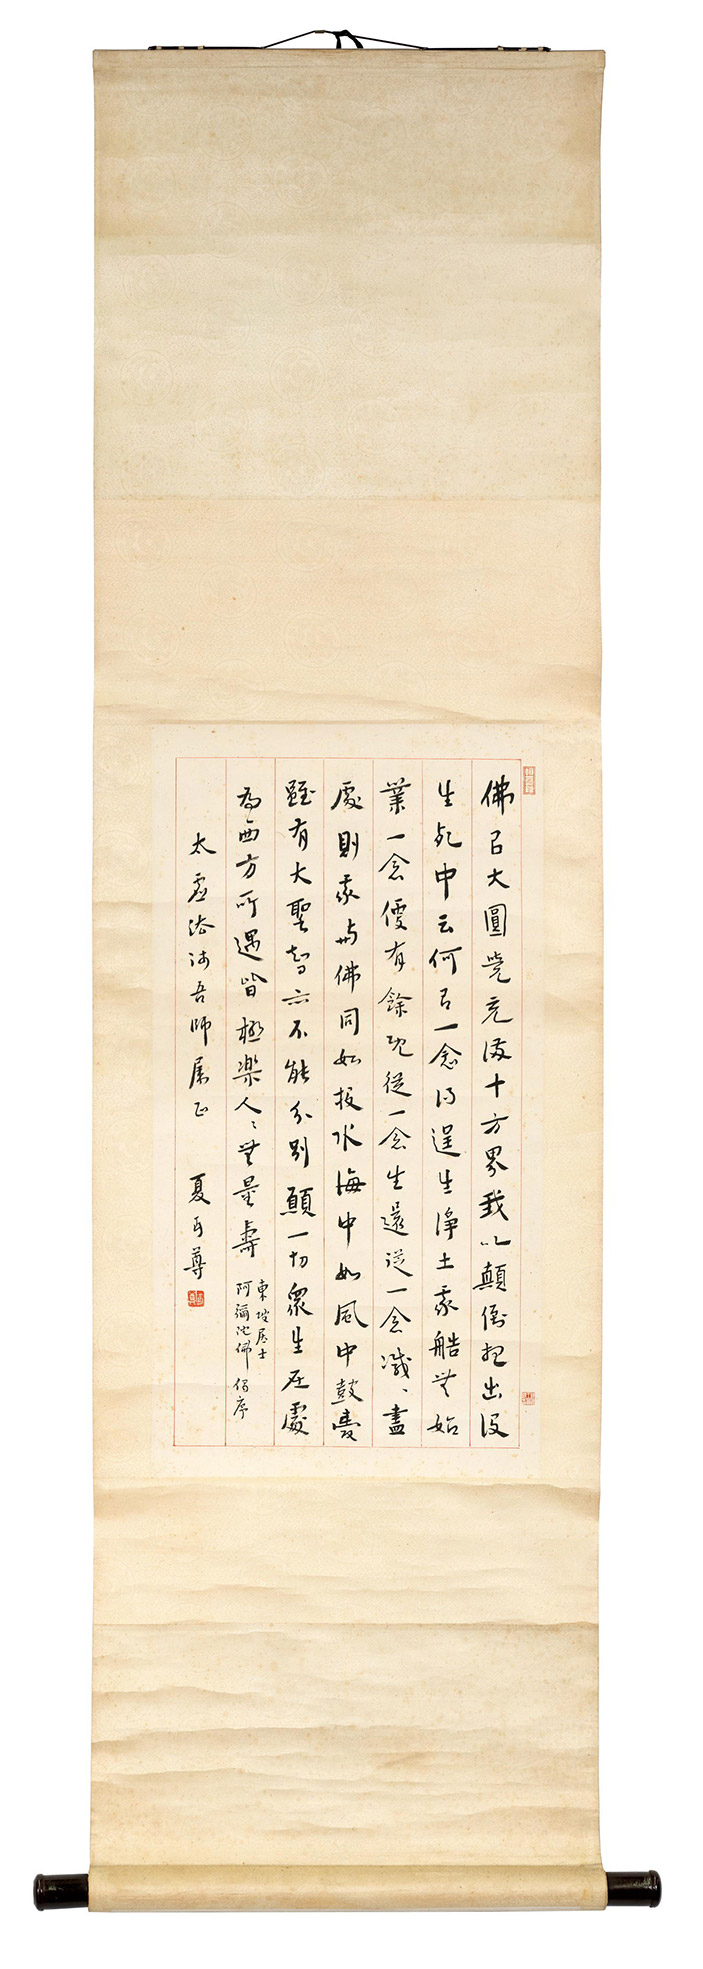 佛㠯大圓覺充滿十方界我以顛倒想出沒
生死中云何㠯一念得迋生淨土我艁無始
業一念便有餘既從一念生還從一念滅、盡
處則我與佛同如投水海中如風中鼓橐
雖有大聖智亦不能分別願一切眾生在處
為西方所遇皆極樂人〻無量壽
東坡居士
阿彌陀佛偈序
太虛法吾師屬正 夏丏尊